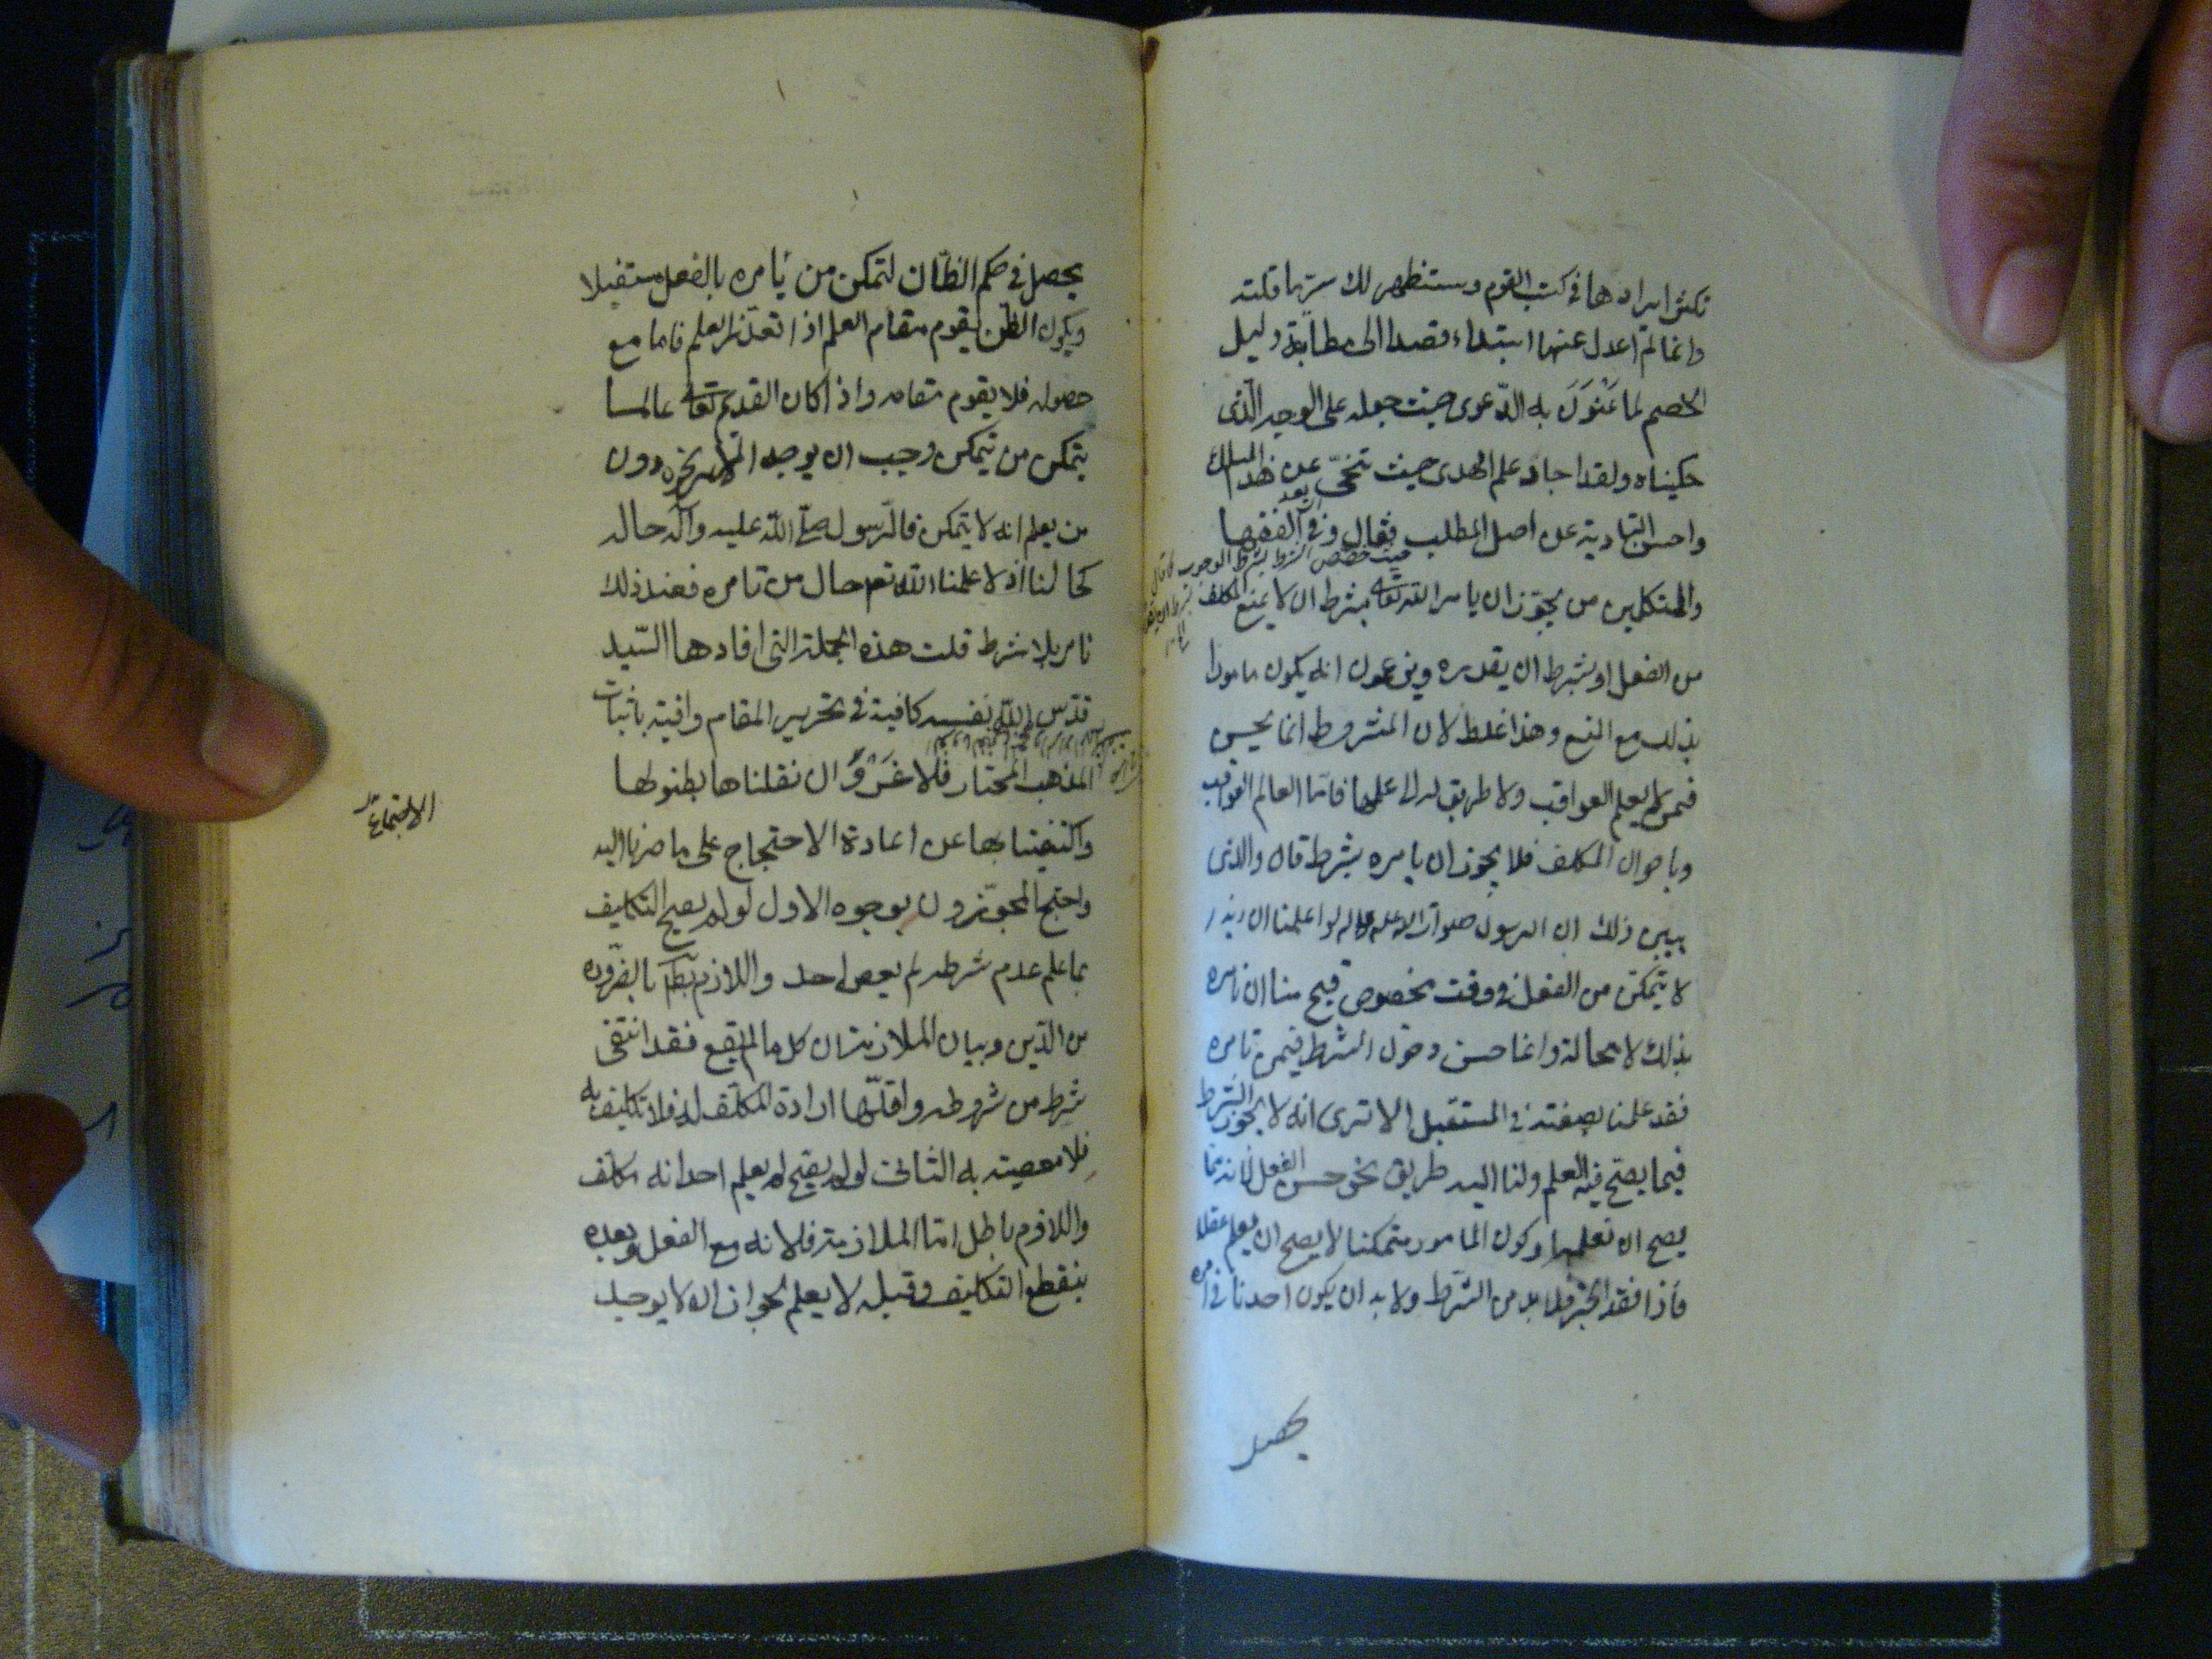 تكثر ايرادها في كتب القوم وستظهر لك سر ما قلته
وانما لم اعدل عنها ابتداء قصدا الى مطابقة دليل
الخصم لما عَنْوَنَ به الدّعوى حيث جعله على الوجه الّذى
حكيناه ولقد اجاد علم الهدى حيث تنحّى عن هذا المسلك
واحسن التادية عن اصل المطلب فقال وفى الفقهاء
والمتكلمين من يجوّز ان يامر الله تعالى بشرط ان لا يمنع المكلف
من الفعل او بشرط ان يقدره ويزعمون انه يكون مامورا
بذلك مع المنع وهذا غلط لان المشروط انما يحسن
فيمن لا يعلم العواقب ولا طريق له الى علمها فامّا العالم بالعواقب
وباحوال المكلف فلا يجوز ان يامره بشرط قال والذى
يبين ذلك ان الرسول صلوات الله عليه واله لو اعلمنا ان زيدا
لا يتمكن من الفعل فى وقت مخصوص قبح منا ان نامره
بذلك لا محالة وانما حسن دخول الشرط فيمن نامره
فقد علمنا بصفته فى المستقبل الا ترى انه لا يجوز الشرط
فيما يصح فيه العلم ولنا اليه طريق نحو حسن الفعل لانه مما
يصح ان نعلمه وكون المامور متمكنا لا يصح ان يعلم عقلا
فاذا فقد الخبر فلا بد من الشرط ولا بد ان يكون احدنا فى امره
يحصل
يحصل فى حكم الظانّ لتمكن من يامره بالفعل مستقبلا
ويكون الظن يقوم مقام العلم اذا تعذّر العلم فاما مع
حصوله فلا يقوم مقامه واذا كان القديم تعالى عالما
بتمكن من يتمكن وجب ان يوجه الامر نحوه دون
من يعلم انه لا يتمكن فالرسول صلى الله عليه وآله حاله
كحالنا اذا علمنا الله تعم حال من نامره فعند ذلك
نامر بلا شرط قلت هذه الجملة التى افادها السّيد
قدّس الله نفسه كافية فى تحرير المقام وافية باثبات
المذهب المختار فلا غَرْوَ ان نقلناها بطولها
واكتفينا بها عن اعادة الاحتجاج على ما صرنا اليه
واحتج المجوّزون بوجوه الاول لو لم يصح التكليف
بما علم عدم شرطه لم يعص احد واللازم بط بالضرورة
من الدّين وبيان الملازمة ان كل ما لم يقع فقد انتفى
شرط من شروطه واقلّها ارادة المكلف له فلا تكليف به
فلا معصية به الثانى لو لم يصح لم يعلم احد انه مكلف
واللازم باطل امّا الملازمة فلانه مع الفعل وبعده
ينقطع التكليف وقبله لا يعلم لجواز ان لا يوجد